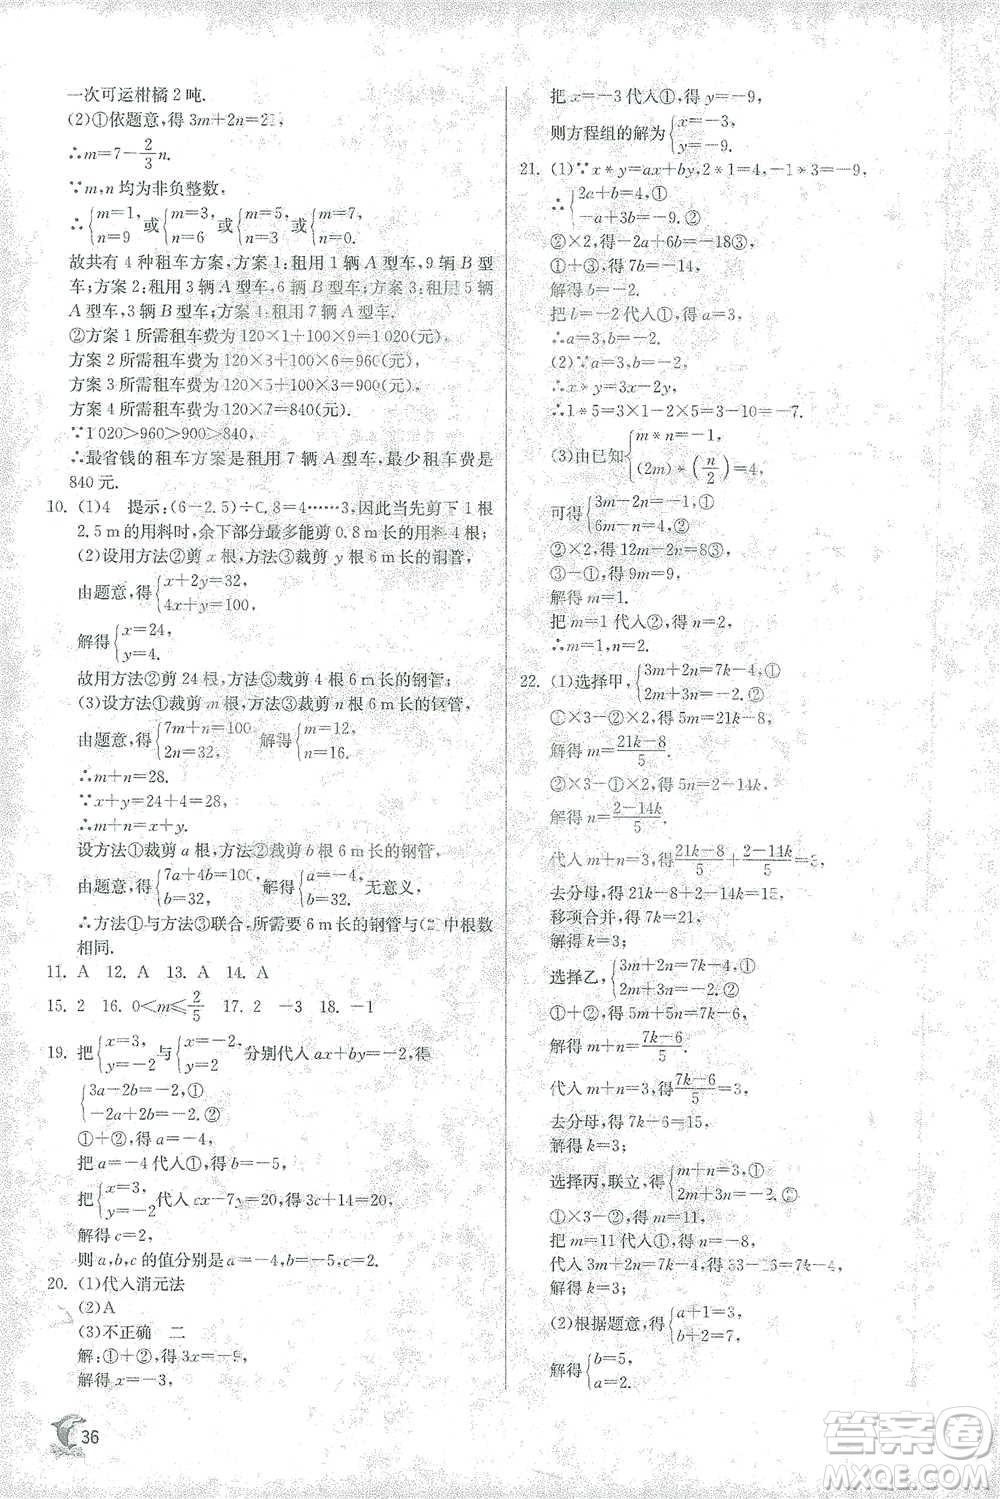 一次可运柑橘 2 吨.
(2)①依题意,得 3m+2n=21,
∴m=7-2/3n.
∵m,n 均为非负整数,
∴{m=1, n=9 或{m=3, n=6 或{m=5, n=3 或{m=7, n=0.
故共有 4 种租车方案,方案 1:租用 1 辆 A 型车,9 辆 B 型
车;方案 2:租用 3 辆 A 型车,6 辆 B 型车;方案 3:租用 5 辆
A 型车,3 辆 B 型车;方案 4:租用 7 辆 A 型车.
②方案 1 所需租车费为 120×1+100×9=1 020(元),
方案 2 所需租车费为 120×3+100×6=960(元),
方案 3 所需租车费为 120×5+100×3=900(元),
方案 4 所需租车费为 120×7=840(元).
∵1 020>960>900>840,
∴最省钱的租车方案是租用 7 辆 A 型车,最少租车费为
840 元.
10. (1)4 提示:(6-2.5)÷0.8=4……3,因此当先剪下 1 根
2.5 m 的用料时,余下部分最多能剪 0.8 m 长的用料 4 根;
(2)设用方法②剪 x 根,方法③裁剪 y 根 6 m 长的钢管,
由题意,得{x+2y=32, 4x+y=100,
解得{x=24, y=4.
故用方法②剪 24 根,方法③裁剪 4 根 6 m 长的钢管;
(3)设方法①裁剪 m 根,方法③裁剪 n 根 6 m 长的钢管,
由题意,得{7m+n=100, 2n=32, 解得{m=12, n=16.
∴m+n=28.
∵x+y=24+4=28,
∴m+n=x+y.
设方法①裁剪 a 根,方法②裁剪 b 根 6 m 长的钢管,
由题意,得{7a+4b=100, b=32, 解得{a=-4, b=32. 无意义,
∴方法①与方法③联合,所需要 6 m 长的钢管与(2)中根数
相同.
11. A 12. A 13. A 14. A
15. 2 16. 0<m≤2/5 17. 2 -3 18. -1
19. 把{x=3, y=-2 与{x=-2, y=2 分别代入 ax+by=-2,得
{3a-2b=-2,① -2a+2b=-2,②
①+②,得 a=-4,
把 a=-4 代入①,得 b=-5,
把{x=3, y=-2 代入 cx-7y=20,得 3c+14=20,
解得 c=2,
则 a,b,c 的值分别是 a=-4,b=-5,c=2.
20. (1)代入消元法
(2)A
(3)不正确 二
解:①+②,得 3x=-9,
解得 x=-3,
36
把 x=-3 代入①,得 y=-9,
则方程组的解为{x=-3, y=-9.
21. (1)∵x*y=ax+by,2*1=4,-1*3=-9,
∴{2a+b=4,① -a+3b=-9.②
②×2,得-2a+6b=-18③,
①+③,得 7b=-14,
解得 b=-2.
把 b=-2 代入①,得 a=3,
∴a=3.
(2)∵a=3,b=-2,
∴x*y=3x-2y,
∴1*5=3×1-2×5=3-10=-7.
(3)由已知{m*n=-1, (2m)*(n/2)=4,
可得{3m-2n=-1,① 6m-n=4,②
②×2,得 12m-2n=8③,
③-①,得 9m=9,
解得 m=1.
把 m=1 代入②,得 n=2,
∴m=1,n=2.
22. (1)选择甲,{3m+2n=7k-4,① 2m+3n=-2,②
①×3-②×2,得 5m=21k-8,
解得 m=21k-8/5.
②×3-①×2,得 5n=2-14k,
解得 n=2-14k/5.
代入 m+n=3,得 21k-8/5+2-14k/5=3,
去分母,得 21k-8+2-14k=15,
移项合并,得 7k=21,
解得 k=3;
选择乙,{3m+2n=7k-4,① 2m+3n=-2,②
①+②,得 5m+5n=7k-6,
解得 m+n=7k-6/5.
代入 m+n=3,得 7k-6/5=3,
去分母,得 7k-6=15,
解得 k=3;
选择丙,联立,得{m+n=3,① 2m+3n=-2,②
①×3-②,得 m=11,
把 m=11 代入①,得 n=-8,
代入 3m+2n=7k-4,得 33-16=7k-4,
解得 k=3;
(2)根据题意,得{a+1=3, b+2=7,
解得{b=5, a=2.
答案圈
MXQE.COM